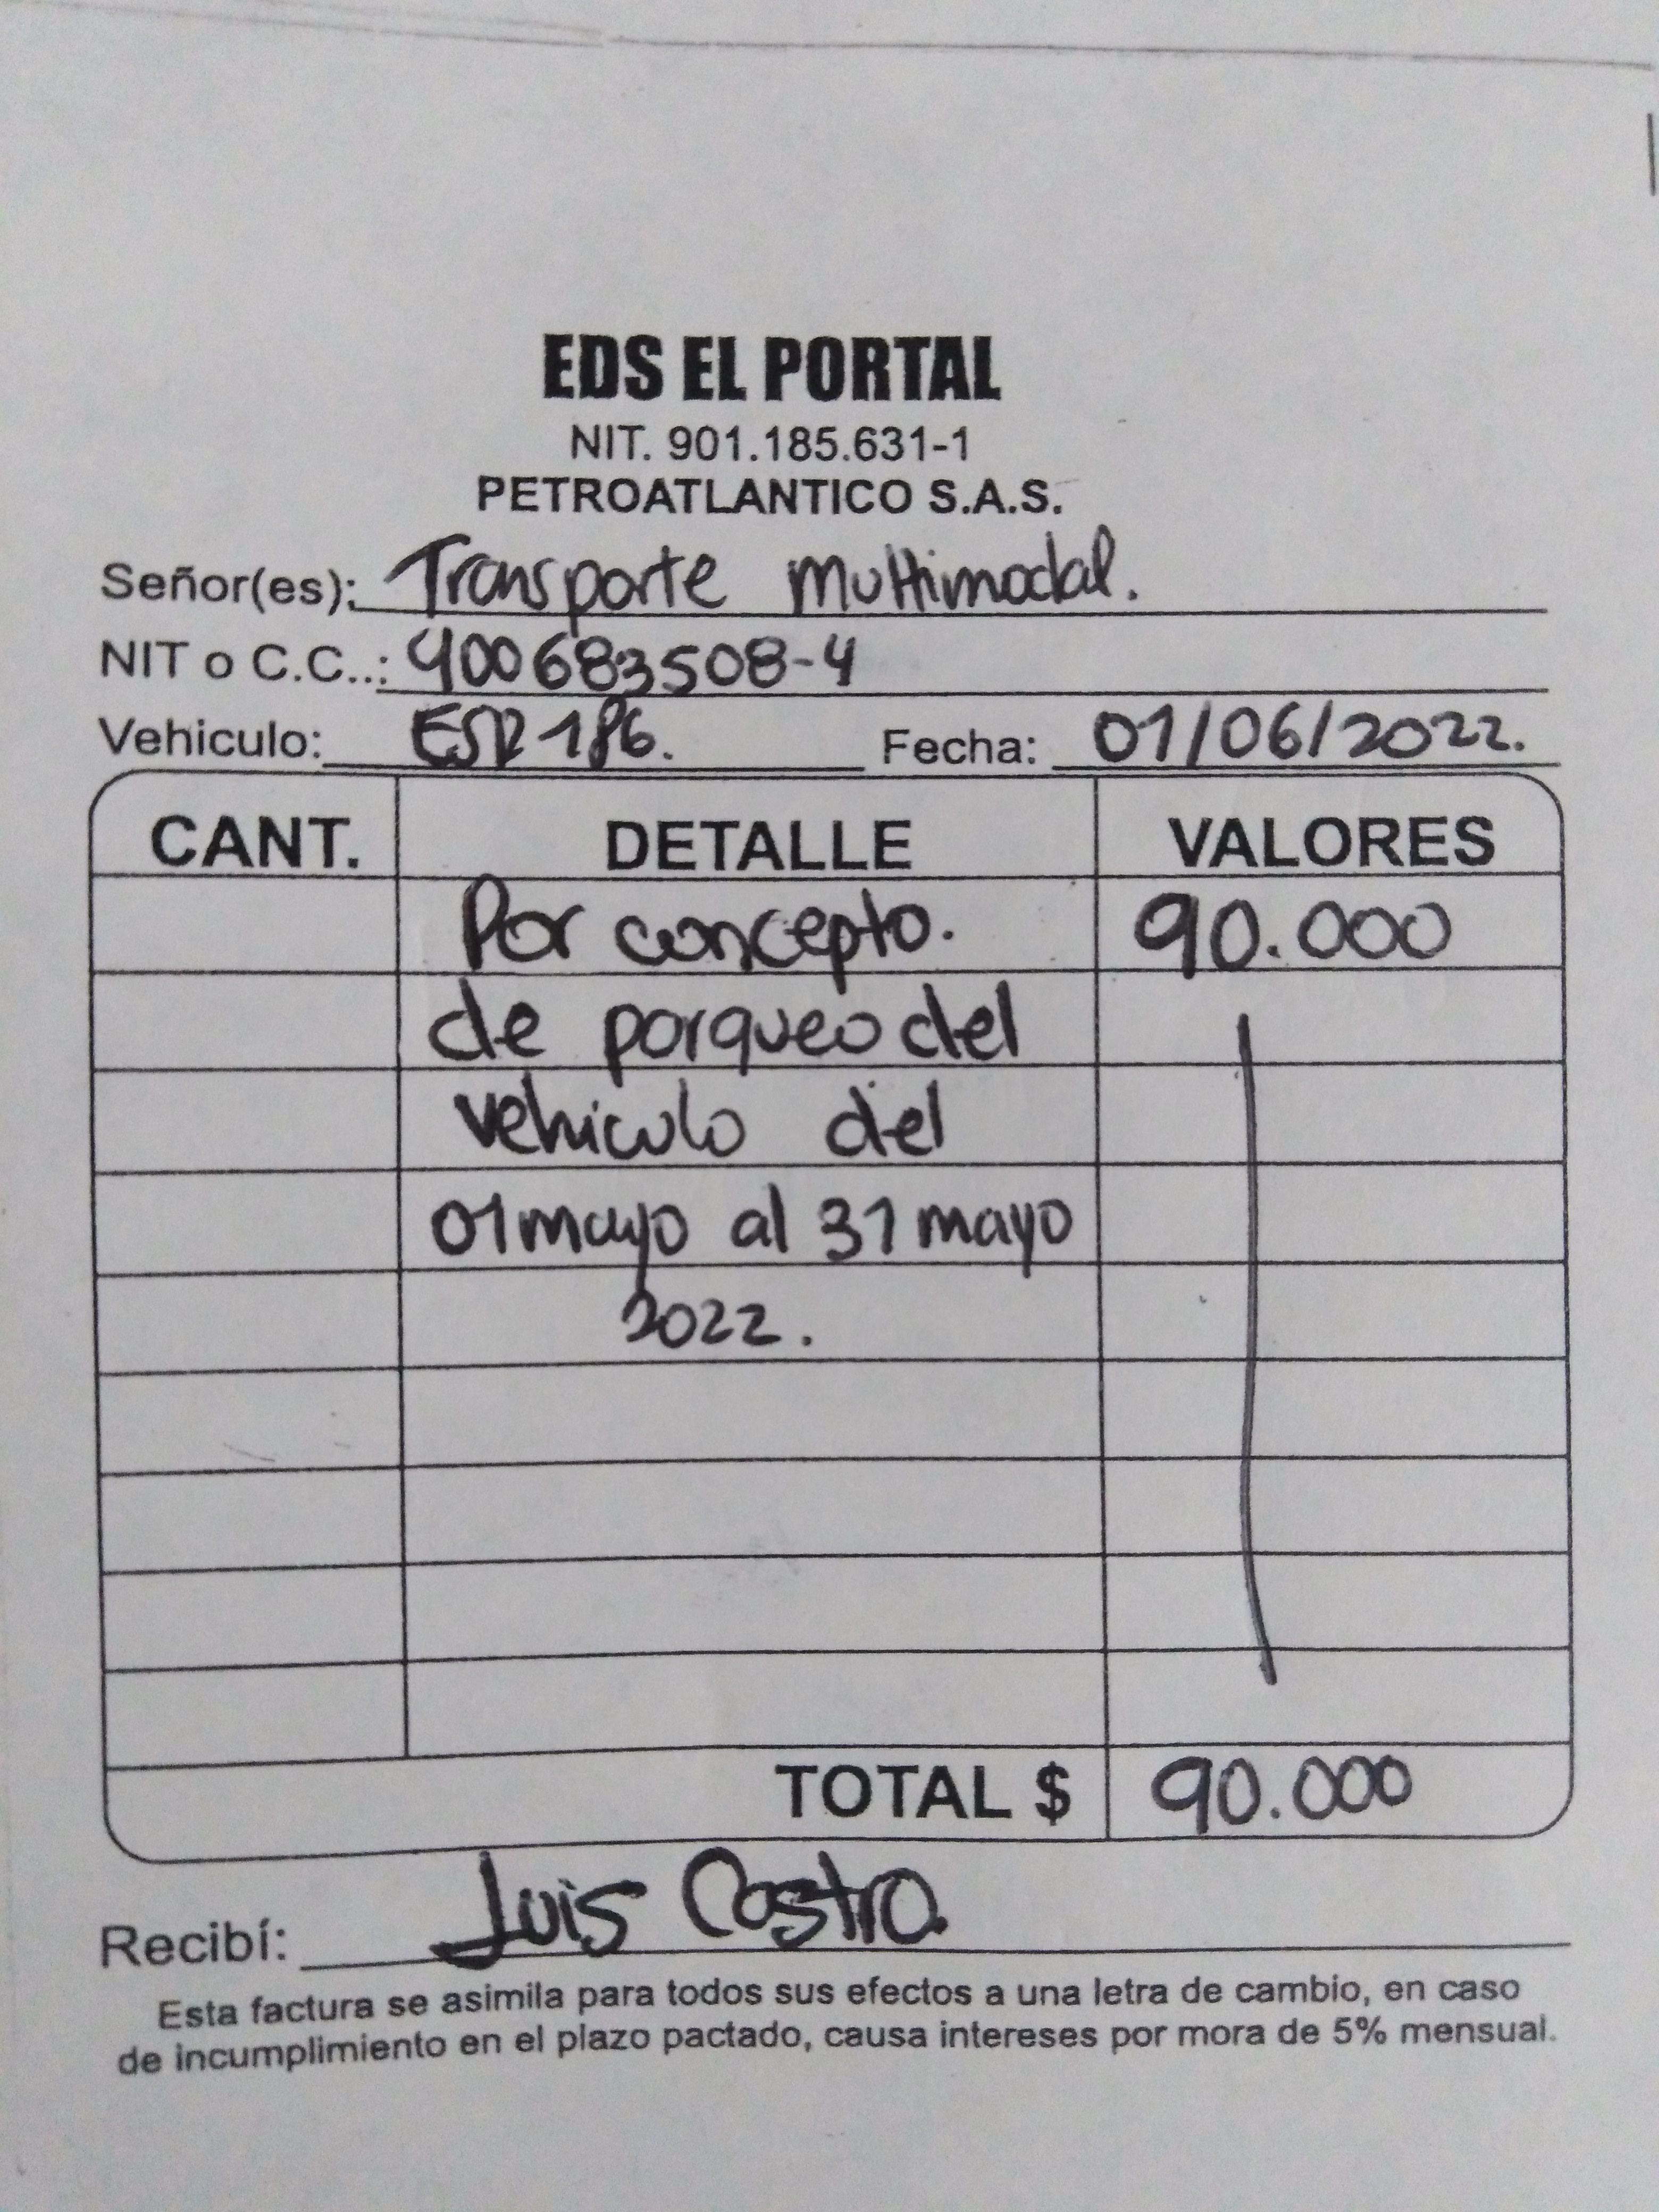 EDS EL PORTAL
NIT. 901.185.631-1
PETROATLANTICO S.A.S.
Señor(es): Transporte Multimodal.
NIT o C.C..: 900683508-4
Vehiculo: Fecha: 01/06/2022.
CANT. DETALLE VALORES
Por concepto. 90.000
de parqueo del
vehiculo del
01 mayo al 31 mayo
2022.
TOTAL $ 90.000
Recibí: Luis Castro
Esta factura se asimila para todos sus efectos a una letra de cambio, en caso
de incumplimiento en el plazo pactado, causa intereses por mora de 5% mensual.